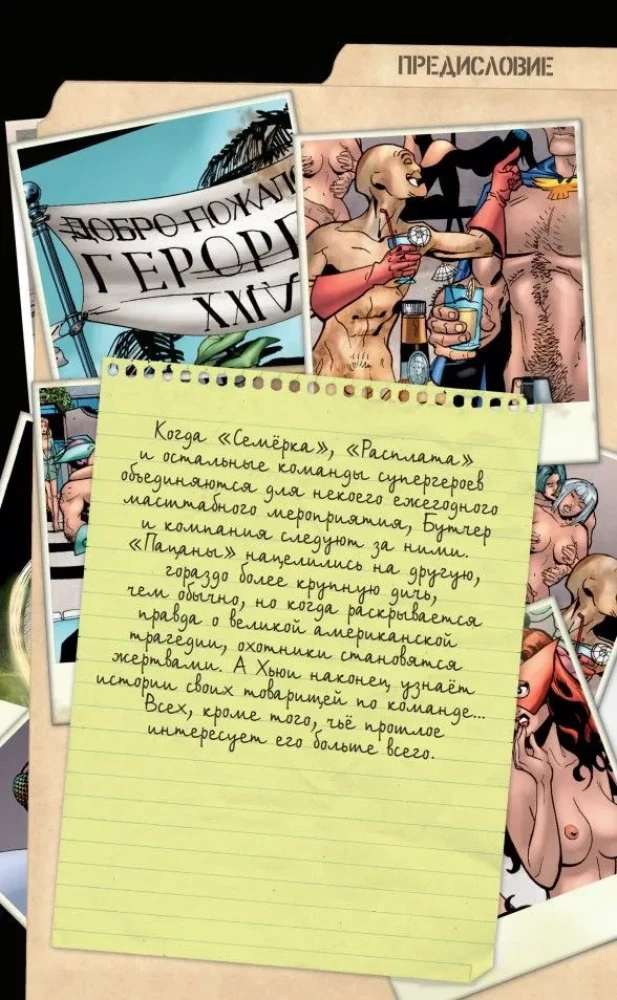 ПРЕДИСЛОВИЕ
ДОБРО ПОЖАЛО
ГЕРОГ
Когда «Семёрка», «Расплата»
и остальные команды супергероев
объединяются для некоего ежегодного
масштабного мероприятия, Бутчер
и компания следуют за ними.
«Пацаны» нацелились на другую,
гораздо более крупную дичь,
чем обычно, но когда раскрывается
правда о великой американской
трагедии, охотники становятся
жертвами. А Хьюи наконец узнаёт
истории своих товарищей по команде...
Всех, кроме того, чьё прошлое
интересует его больше всего.